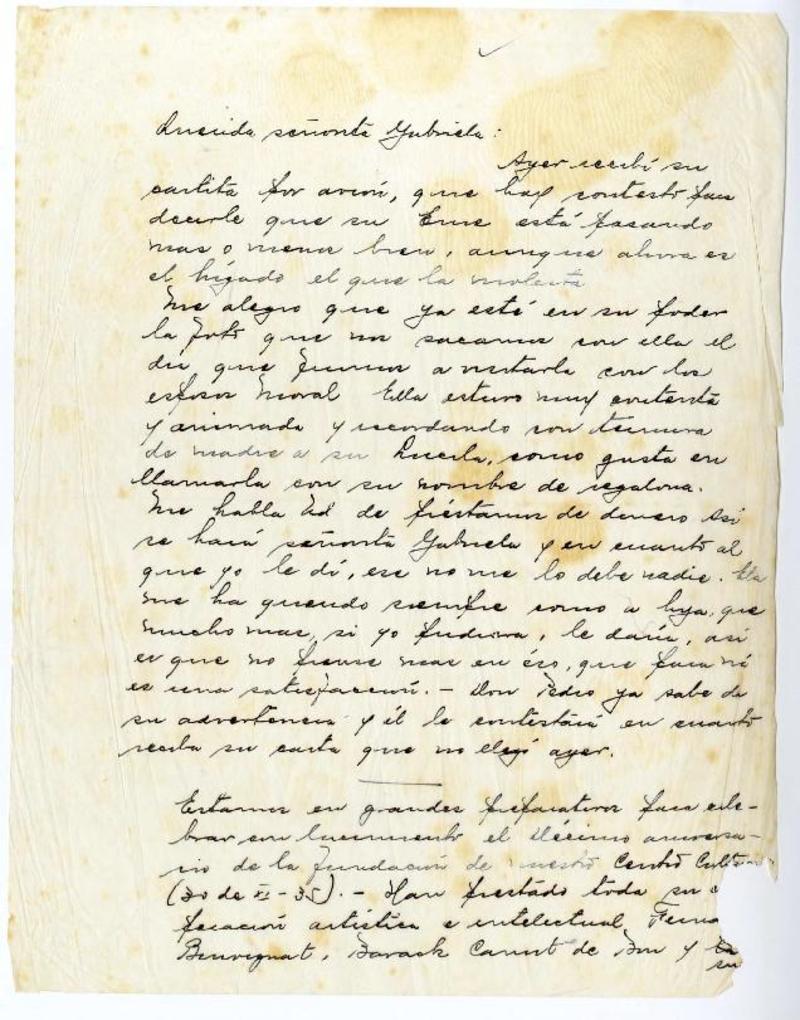 Querida señorita Gabriela:
Ayer recibí su
cartita por avión, que hoy contesto para
decirle que su Eme está pasando
mas o menos bien, aunque ahora es
el hígado el que la molesta
Me alegro que ya esté en su poder
la foto que nos sacamos con ella el
día que fuimos a visitarla con los
esposos Moral Ella estuvo muy contenta
y animada y recordando con ternura
de madre a su Lucila, como gusta en
llamarla con su nombre de regalona.
Me habla Ud de préstamos de dinero Así
se hará señorita Gabriela y en cuanto al
que yo le dí, ese no me lo debe nadie. Ella
me ha querido siempre como a hija, que
mucho mas, si yo pudiera, le daría, así
es que no piense mas en éso, que para mí
es una satisfacción. - Don Pedro ya sabe de
su advertencia y él le contestará en cuanto
reciba su carta que no llegó ayer.
Estamos en grandes preparativos para cele-
brar con lucimiento el décimo aniversa-
rio de la fundación de nuestro Centro
(30 de VI - 35). - Han prestado toda su
artística e intelectual
Benvignat, Barack Canut de Bon y
su